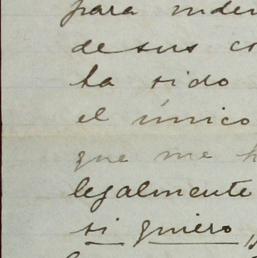 para
de sus
ha sido
el único
que me
legalmente
si quiero